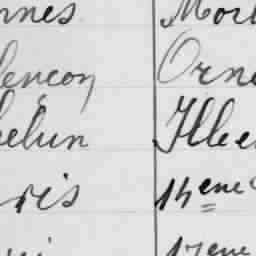 nnes Morb
lençon Orne
helun Ille
ris 14eme
17eme